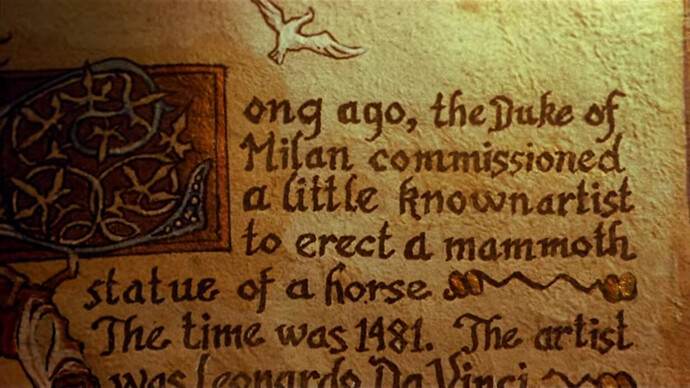 Long ago, the Duke of
Milan commissioned
a little known artist
to erect a mammoth
statue of a horse
The time was 1481. The artist
was Leonardo Da Vinci